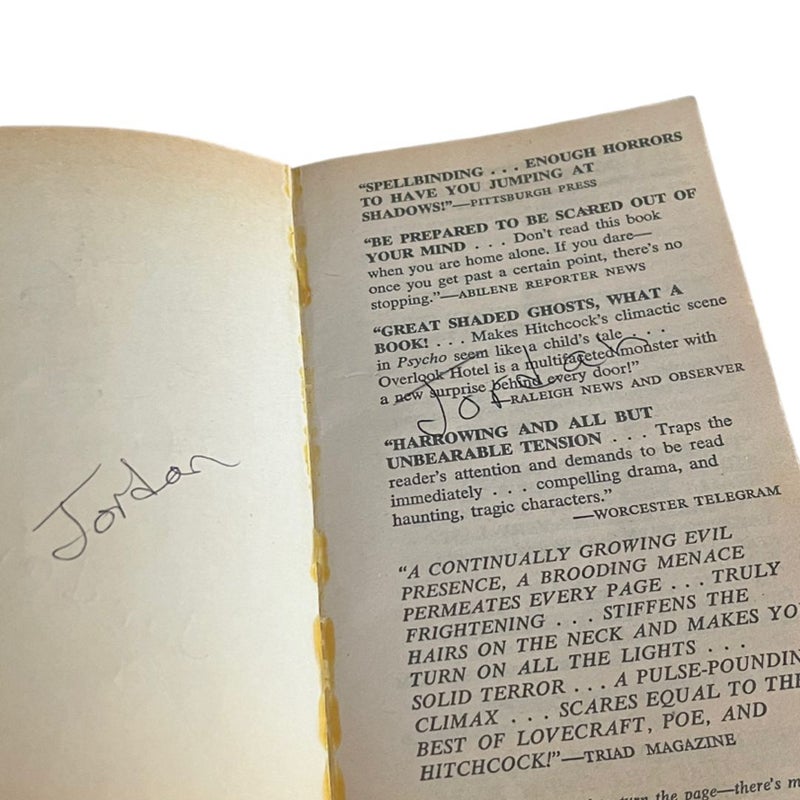 Jordan
“SPELLBINDING . . . ENOUGH HORRORS
TO HAVE YOU JUMPING AT
SHADOWS!”—PITTSBURGH PRESS
“BE PREPARED TO BE SCARED OUT OF
YOUR MIND . . . Don't read this book
when you are home alone. If you dare—
once you get past a certain point, there's no
stopping.”—ABILENE REPORTER NEWS
“GREAT SHADED GHOSTS, WHAT A
BOOK! . . . Makes Hitchcock's climactic scene
in Psycho seem like a child's tale . . .
Overlook Hotel is a multifaceted monster with
a new surprise behind every door!”
—RALEIGH NEWS AND OBSERVER
Jordan
“HARROWING AND ALL BUT
UNBEARABLE TENSION . . . Traps the
reader's attention and demands to be read
immediately . . . compelling drama, and
haunting, tragic characters.”
—WORCESTER TELEGRAM
“A CONTINUALLY GROWING EVIL
PRESENCE, A BROODING MENACE
PERMEATES EVERY PAGE . . . TRULY
FRIGHTENING . . . STIFFENS THE
HAIRS ON THE NECK AND MAKES YO
TURN ON ALL THE LIGHTS . . .
SOLID TERROR . . . A PULSE-POUNDIN
CLIMAX . . . SCARES EQUAL TO THE
BEST OF LOVECRAFT, POE, AND
HITCHCOCK!”—TRIAD MAGAZINE
turn the page—there's m